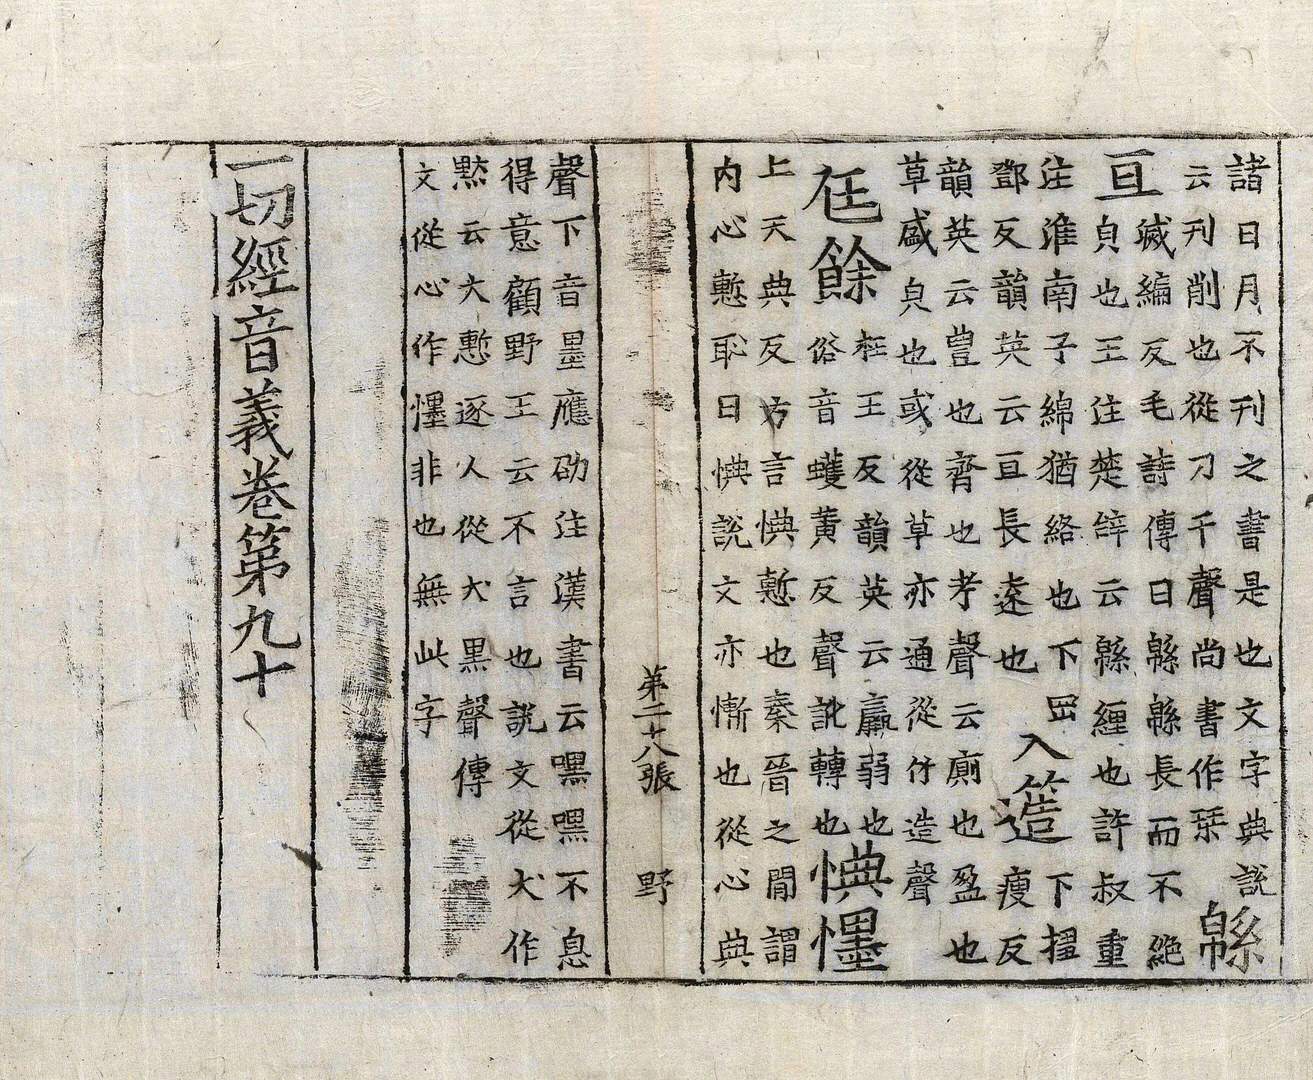 諸日月不刊之書是也文字典說
云刊削也從刀千聲尚書作栞
緜亘
滅編反毛詩傳曰緜緜長而不絕
皃也王注楚辝云緜緾也許叔重
注淮南子綿猶絡也下
鄧反韻英云亘長遠也
入簉
下搊
瘦反
韻英云豊也齊也考聲云廁也盈也
草盛皃也或從草亦通從竹造聲
尫餘
枉王反韻英云羸弱也
俗音蠖黄反聲訛轉也
㥏㦄
上天典反方言㥏慙也秦晉之間謂
内心慙恥曰㥏說文亦慚也從心典
第二十八張 野
聲下音墨應劭注漢書云嘿嘿不息
得意顧野王云不言也說文從犬作
黙云犬慙逐人從犬黒聲傳
文從心作㦄非也無此字
一切經音義卷第九十